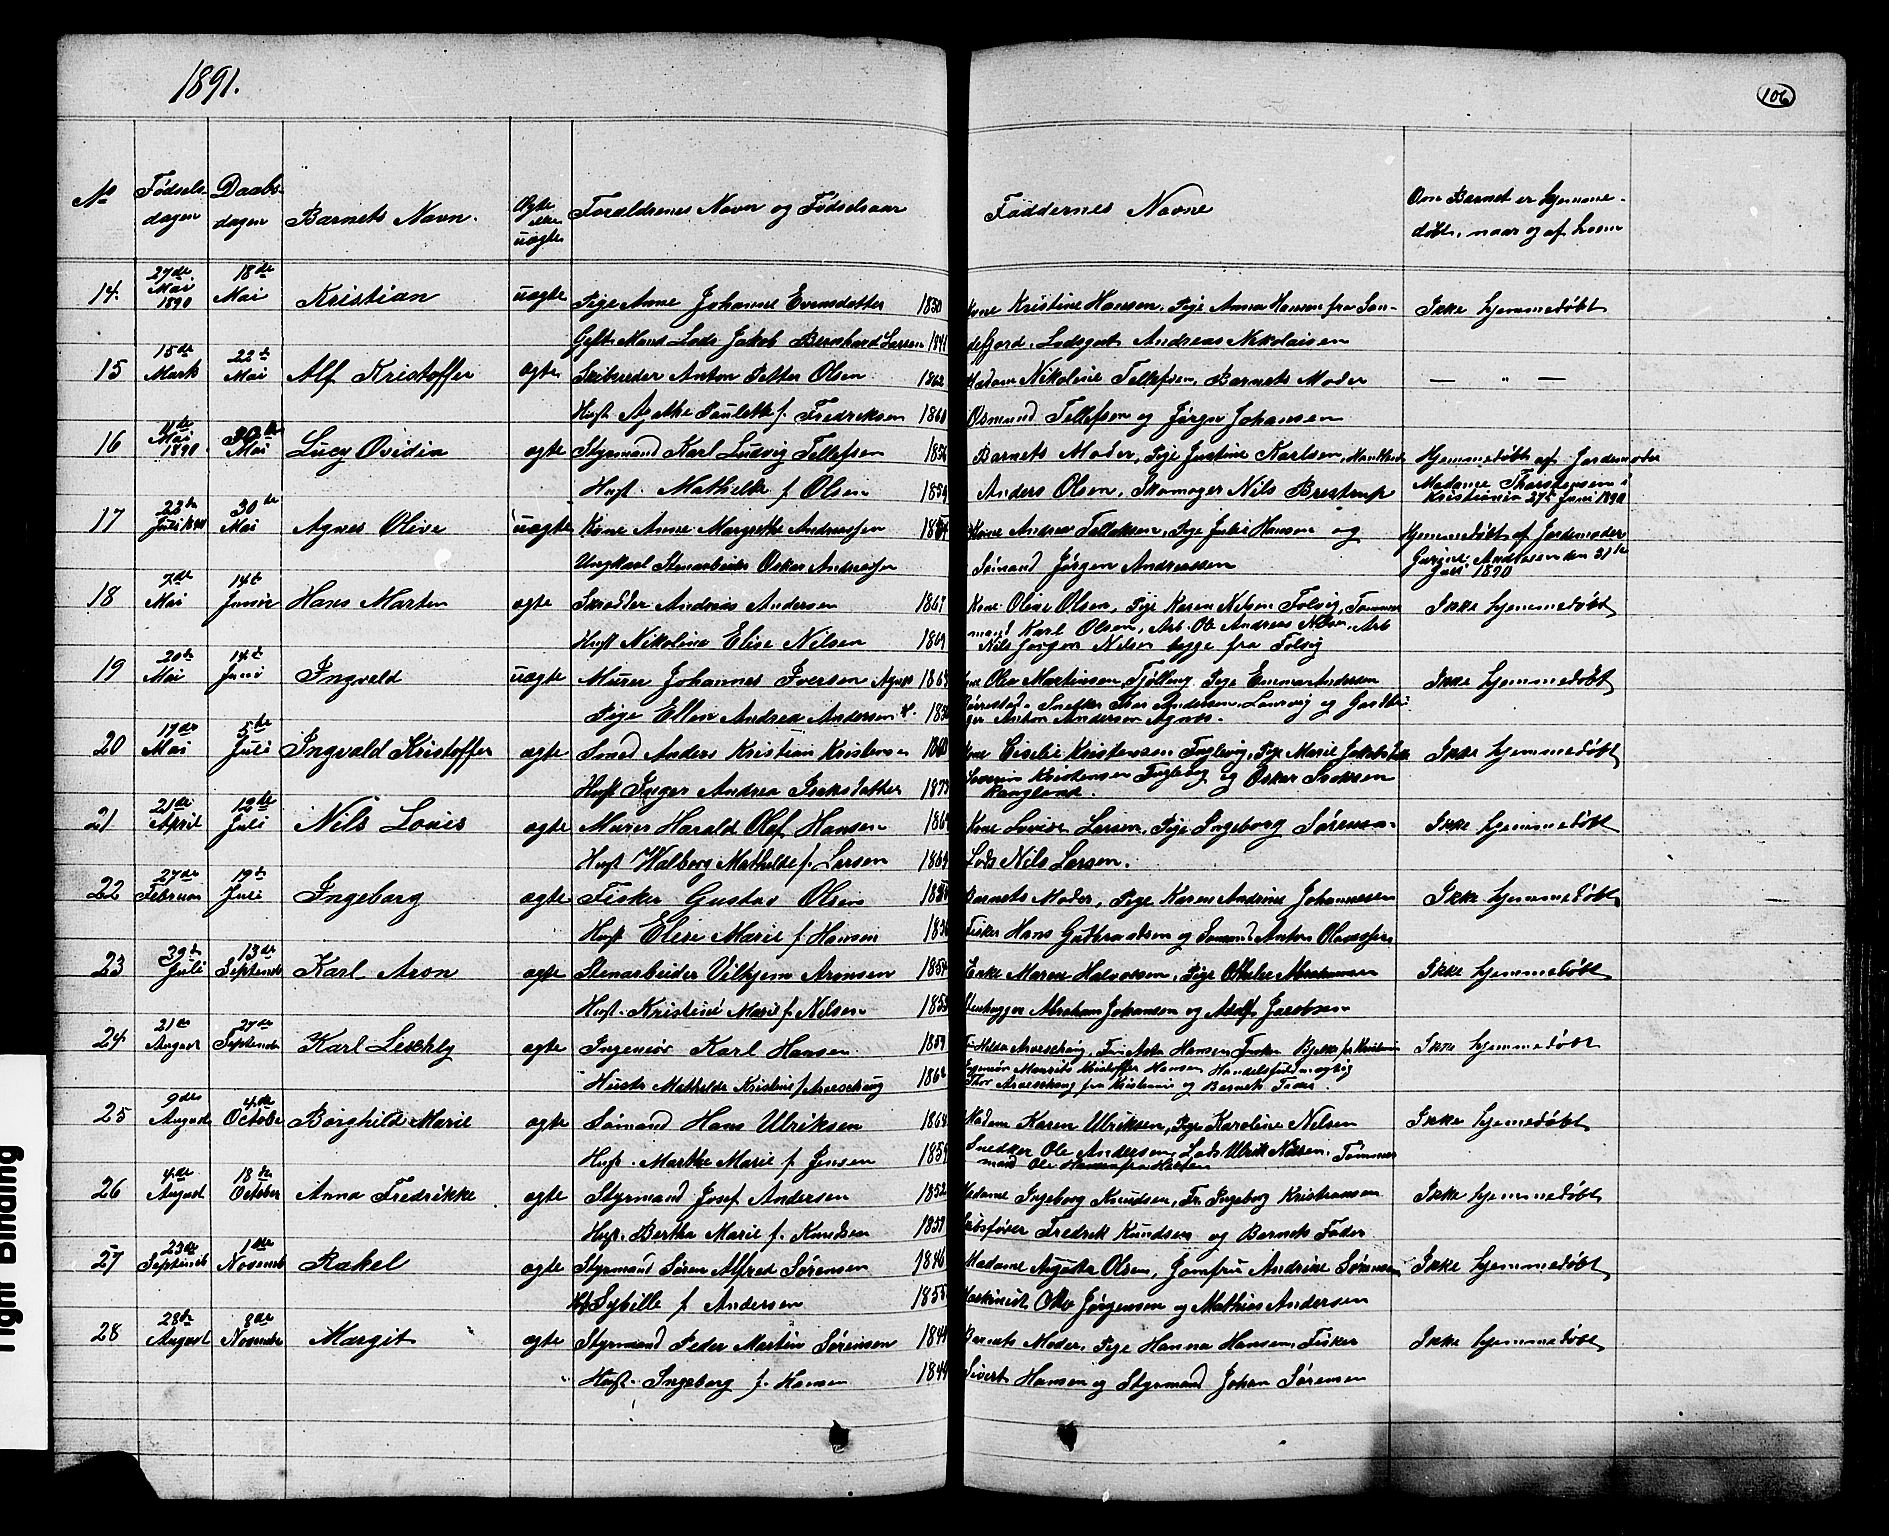 1891.
106
No Fødsels- dagen Daabs- dagen Barnets Navn. Ægte eller uægte Forældrenes Navn og Fødselsaar Faddernes Navne Om Barnet er hjemme-
døbt, naar og af hvem
14. 27de Mai 1890 18de Mai Kristian uægte Pige Anne Johanne Evensdatter 1850 Kone Kristine Hansen, Pige Anna Hansen fra San- Ikke hjemmedøbt
Gift Mand Lods Jakob Bernhard Larsen 1841 defjord, Lodsgut Andreas Nikolaisen
15 15de Mark 22de Mai Alf Kristoffer ægte Anton Petter Olsen 1862 Madam Nikoline Tellefsen, Barnets Moder — " —
Hust. Agathe Paulette f. Fredriksen 1860 Osmund Tellefsen og Jørgen Johansen
16 11te Mai 1890 30te Mai Lucy Ovidia ægte Styrmand Karl Ludvig Tellefsen 1856 Barnets Moder, Pige Justine Karlsen, Hjemmedøbt af Jordemoder
Hust. Mathilde f. Olsen 1859 Anders Olsen, Skomager Nils Brestrup Madame Thorstensen i
Kristiania 27de Juni 1890
17 22de Juli 1890 30te Mai Agnes Olive uægte Kone Anne Margrethe Andreassen Kone Andrea Tollefsen, Pige Julie Hansen og Hjemmedøbt af Jordemoder
Ungkarl Stenarbeider Oskar Andreassen Sømand Jørgen Andreassen Gurine Andresen den 31te
Juli 1890
18 7de Mai 14de Juni Hans Martin ægte Skrædder Andreas Andersen 1867 Kone Oline Olsen, Pige Karen Nilsen Folvig, Tømmer
mand Karl Olsen, Arb. Ole Andreas Nilsen, Arb Ikke hjemmedøbt
Hust Nikoline Elise Nilsen 1869 Nils Jørgen Nilsen begge fra Folvig
19 20de Mai 14de Juni Ingvald uægte Murer Johannes Iversen Agnes 1864 Kone Olea Martinsen, Tjølling, Pige Emma Andersen Ikke hjemmedøbt
Pige Ellen Andrea Andersen Snekker Andersen, Laurvig og
Anton Andersen Agnes.
20 19de Mai 5te Juli Ingvald Kristoffer ægte Smed Anders Kristian Kristensen 1860 Kone Cicelie Kristensen Fuglevig, Pige Marie Jakobs Ikke hjemmedøbt
Hust Inger Andrea Isaksdatter Severin Kristensen Fuglevig og Oskar Isaksen
21 21de April 12te Juli Nils Louis ægte Murer Harald Olaf Hansen Kone Lovise Larsen, Pige Ingeborg Sørensen Ikke hjemmedøbt
Hust Walborg Mathilde f. Larsen 1864 Lods Nils Larsen.
22 27de Februar 19de Juli Ingeborg ægte Fisker Gustav Olsen Barnets Moder, Pige Karen Andrine Johannesen Ikke hjemmedøbt
Hust Elise Marie f Hansen Fisker Hans Gulbrandsen og Sømand Anton Olavessen
23 Juli 13de Septemb Karl Aron ægte Stenarbeider Vilhjem Aronsen 1854 Enke Maren Halvorsen, Pige Othilie Abrahamsen Ikke hjemmedøbt
Hust. Kristine Marie f. Nilsen 1855 Stenhugger Abraham Johansen og Adolf Jacobsen
24 21de August 27de Septembe Karl ægte Ingeniør Karl Hansen 1859 Hilda Averschoug, Hansen Bjelke fra Kristiania Ikke hjemmedøbt
Hustr Mathilde Kristine f Averschoug 1862 Ingeniør Mauritz Kristoffer Hansen
Thor Averschoug fra Kristiania og Barnets Fader.
25 9de August 4de Octobe Borghild Marie ægte Sømand Hans Ulriksen 1864 Madam Karen Ulriksen, Pige Karoline Nilsen Ikke hjemmedøbt
Hust. Marthe Marie f. Jensen 1859 Snekker Ole Andersen, Lods Ulrik Nilsen, Tømmer
mand Ole Hansen fra Halten
26 4de August 18de October Anna Fredrikke ægte Styrmand Josef Andersen 1852 Madame Ingeborg Knudsen, Fr. Ingeborg Kristiansen Ikke hjemmedøbt
Hust. Bertha Marie f. Knudsen Skibsfører Fredrik Knudsen og Barnets Fader
27 23de Septemb 1ste Novemb Rakel ægte Styrmand Søren Alfred Sørensen 1846 Madame Augusta Olsen, Jomfru Andrine Sørensen Ikke hjemmedøbt
Hst Sybille f Andersen 1855 Maskinist Otto Jørgensen og Mathias Andersen
28 28de August 8de Novembe Margit ægte Styrmand Peder Martin Sørensen 1841 Barnets Moder, Pige Hanna Hansen, Fisker Ikke hjemmedøbt
Hust. Ingeborg f. Hansen 1844 Sivert Hansen og Styrmand Johan Sørensen
Tight Binding